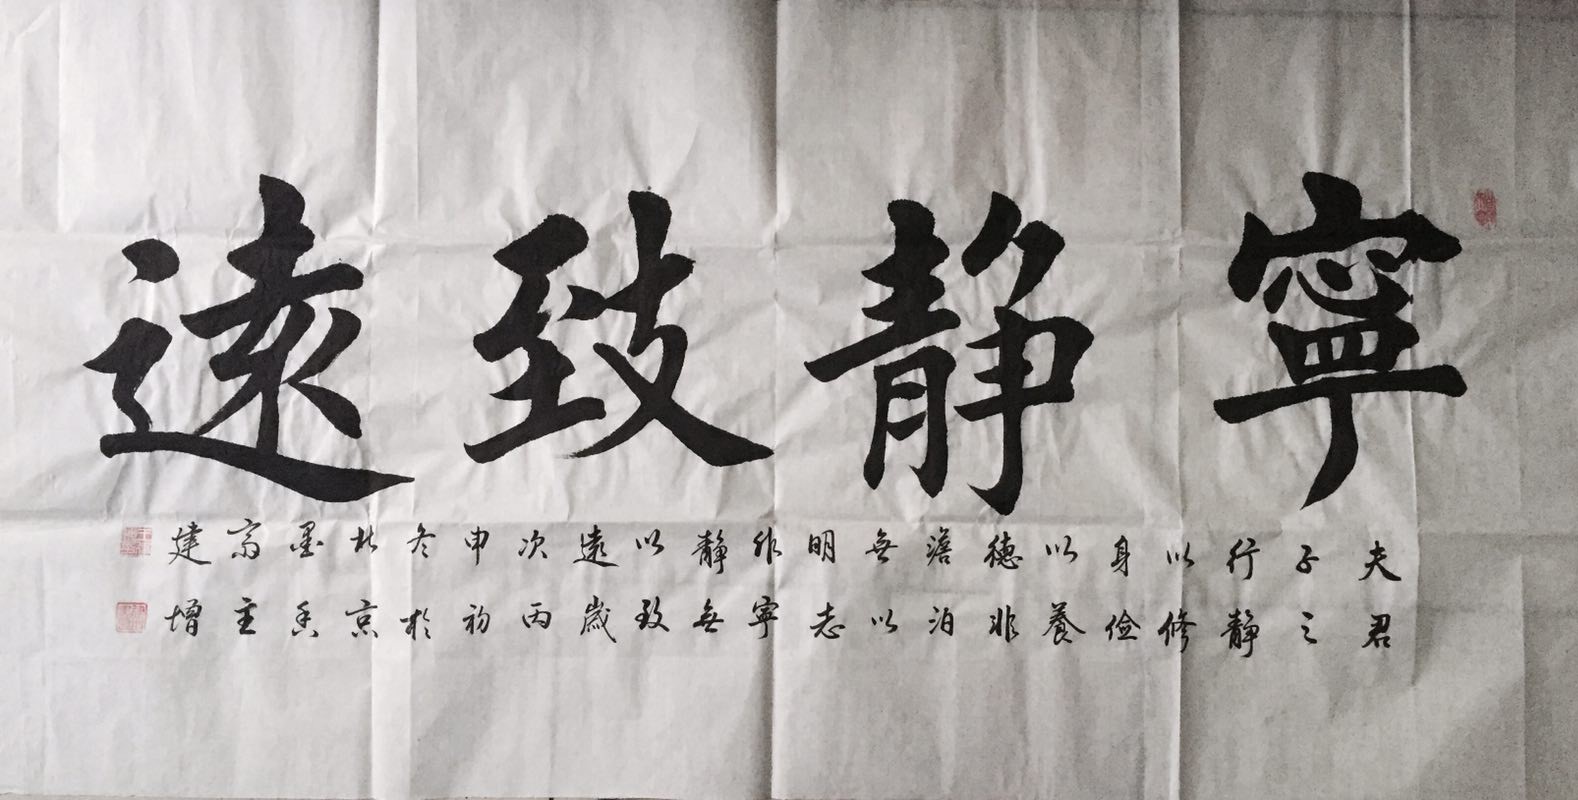 寧靜致遠
夫君
子之
行靜
以修
身儉
以養
德非
澹泊
無以
明志
非寧
靜無
以致
遠歲
次丙
申初
冬於
北京
墨香
齋主
建增